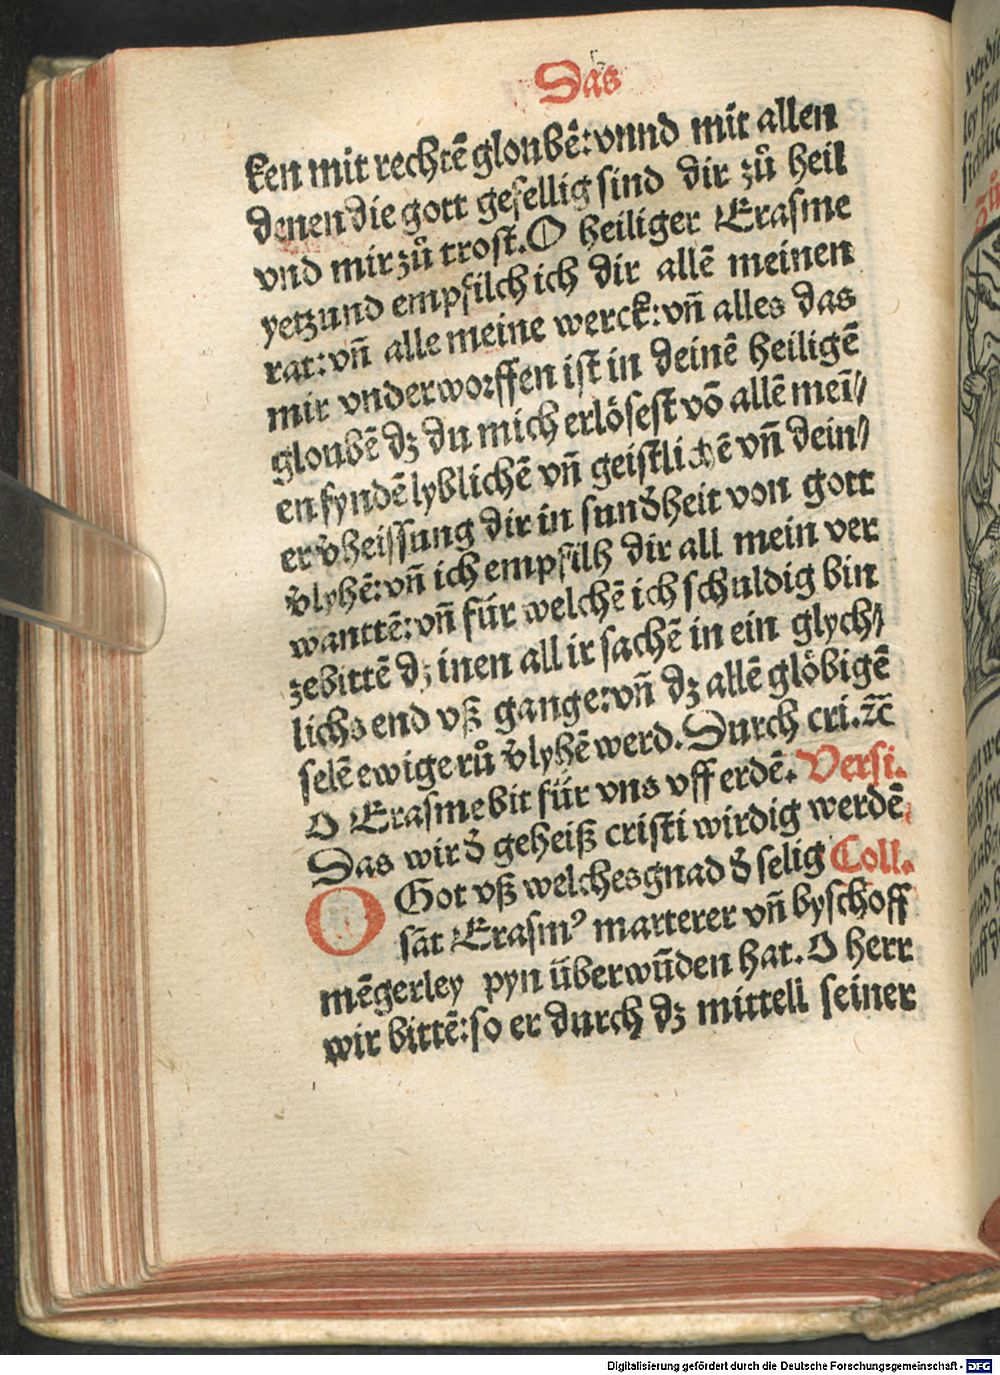 Das
ken mit rechtē gloubē: vnnd mit allen
denen die gott gefellig sind dir zů heil
vnd mir zů trost. O heiliger Erasme
yetzund empfilch ich dir allē meinen
rat: vñ alle meine werck: vñ alles das
mir vnderworffen ist in deinē heiligē
gloubē dz du mich erlösest vō allē mei̅//
en fyndē lyblichē vñ geistlichē vñ dein//
er v̉heissung dir in sunḋheit von gott
v̉lyhē: vñ ich empfilh dir all mein ver
wanttē: vñ für welchē ich schuldig bin
zebittē dz inen all ir sachē in ein glych//
lichs end vß gange: vñ dz allē glöbigē
selē ewige rů v̉lyhē werd. Durch cri. ⁊c̄
O Erasme bit für vns vff erdē. Versi.
Das wir ḋ geheiß cristi wirdig werdē.
O Got vß welches gnad ḋ selig Coll.
sāt Erasmꝰ marterer vñ byschoff
mēgerley pyn überwūden hat. O herr
wir bittē: so er durch dz mittell seiner
Digitalisierung gefördert durch die Deutsche Forschungsgemeinschaft - DFG